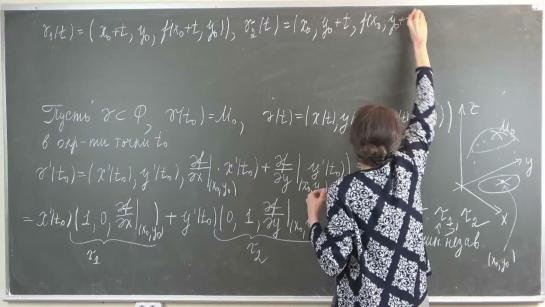 γ₁(t) = (x₀+t, y₀, f(x₀+t, y₀)), γ₂(t) = (x₀, y₀+t, f(x₀, y₀+
Пусть γ ⊂ Φ, γ(t₀) = M₀, γ(t) = (x(t), y
в окр-ти точки t₀
γ'(t₀) = (x'(t₀), y'(t₀), ∂f/∂x|(x₀,y₀) · x'(t₀) + ∂f/∂y|(x₀,y₀) y'(t₀)
= x'(t₀) (1, 0, ∂f/∂x|(x₀,y₀)) + y'(t₀) (0, 1, ∂f/∂y|
r₁ r₂
r₁, r₂
лин. незав.
z
M₀
y
x
(x₀, y₀)